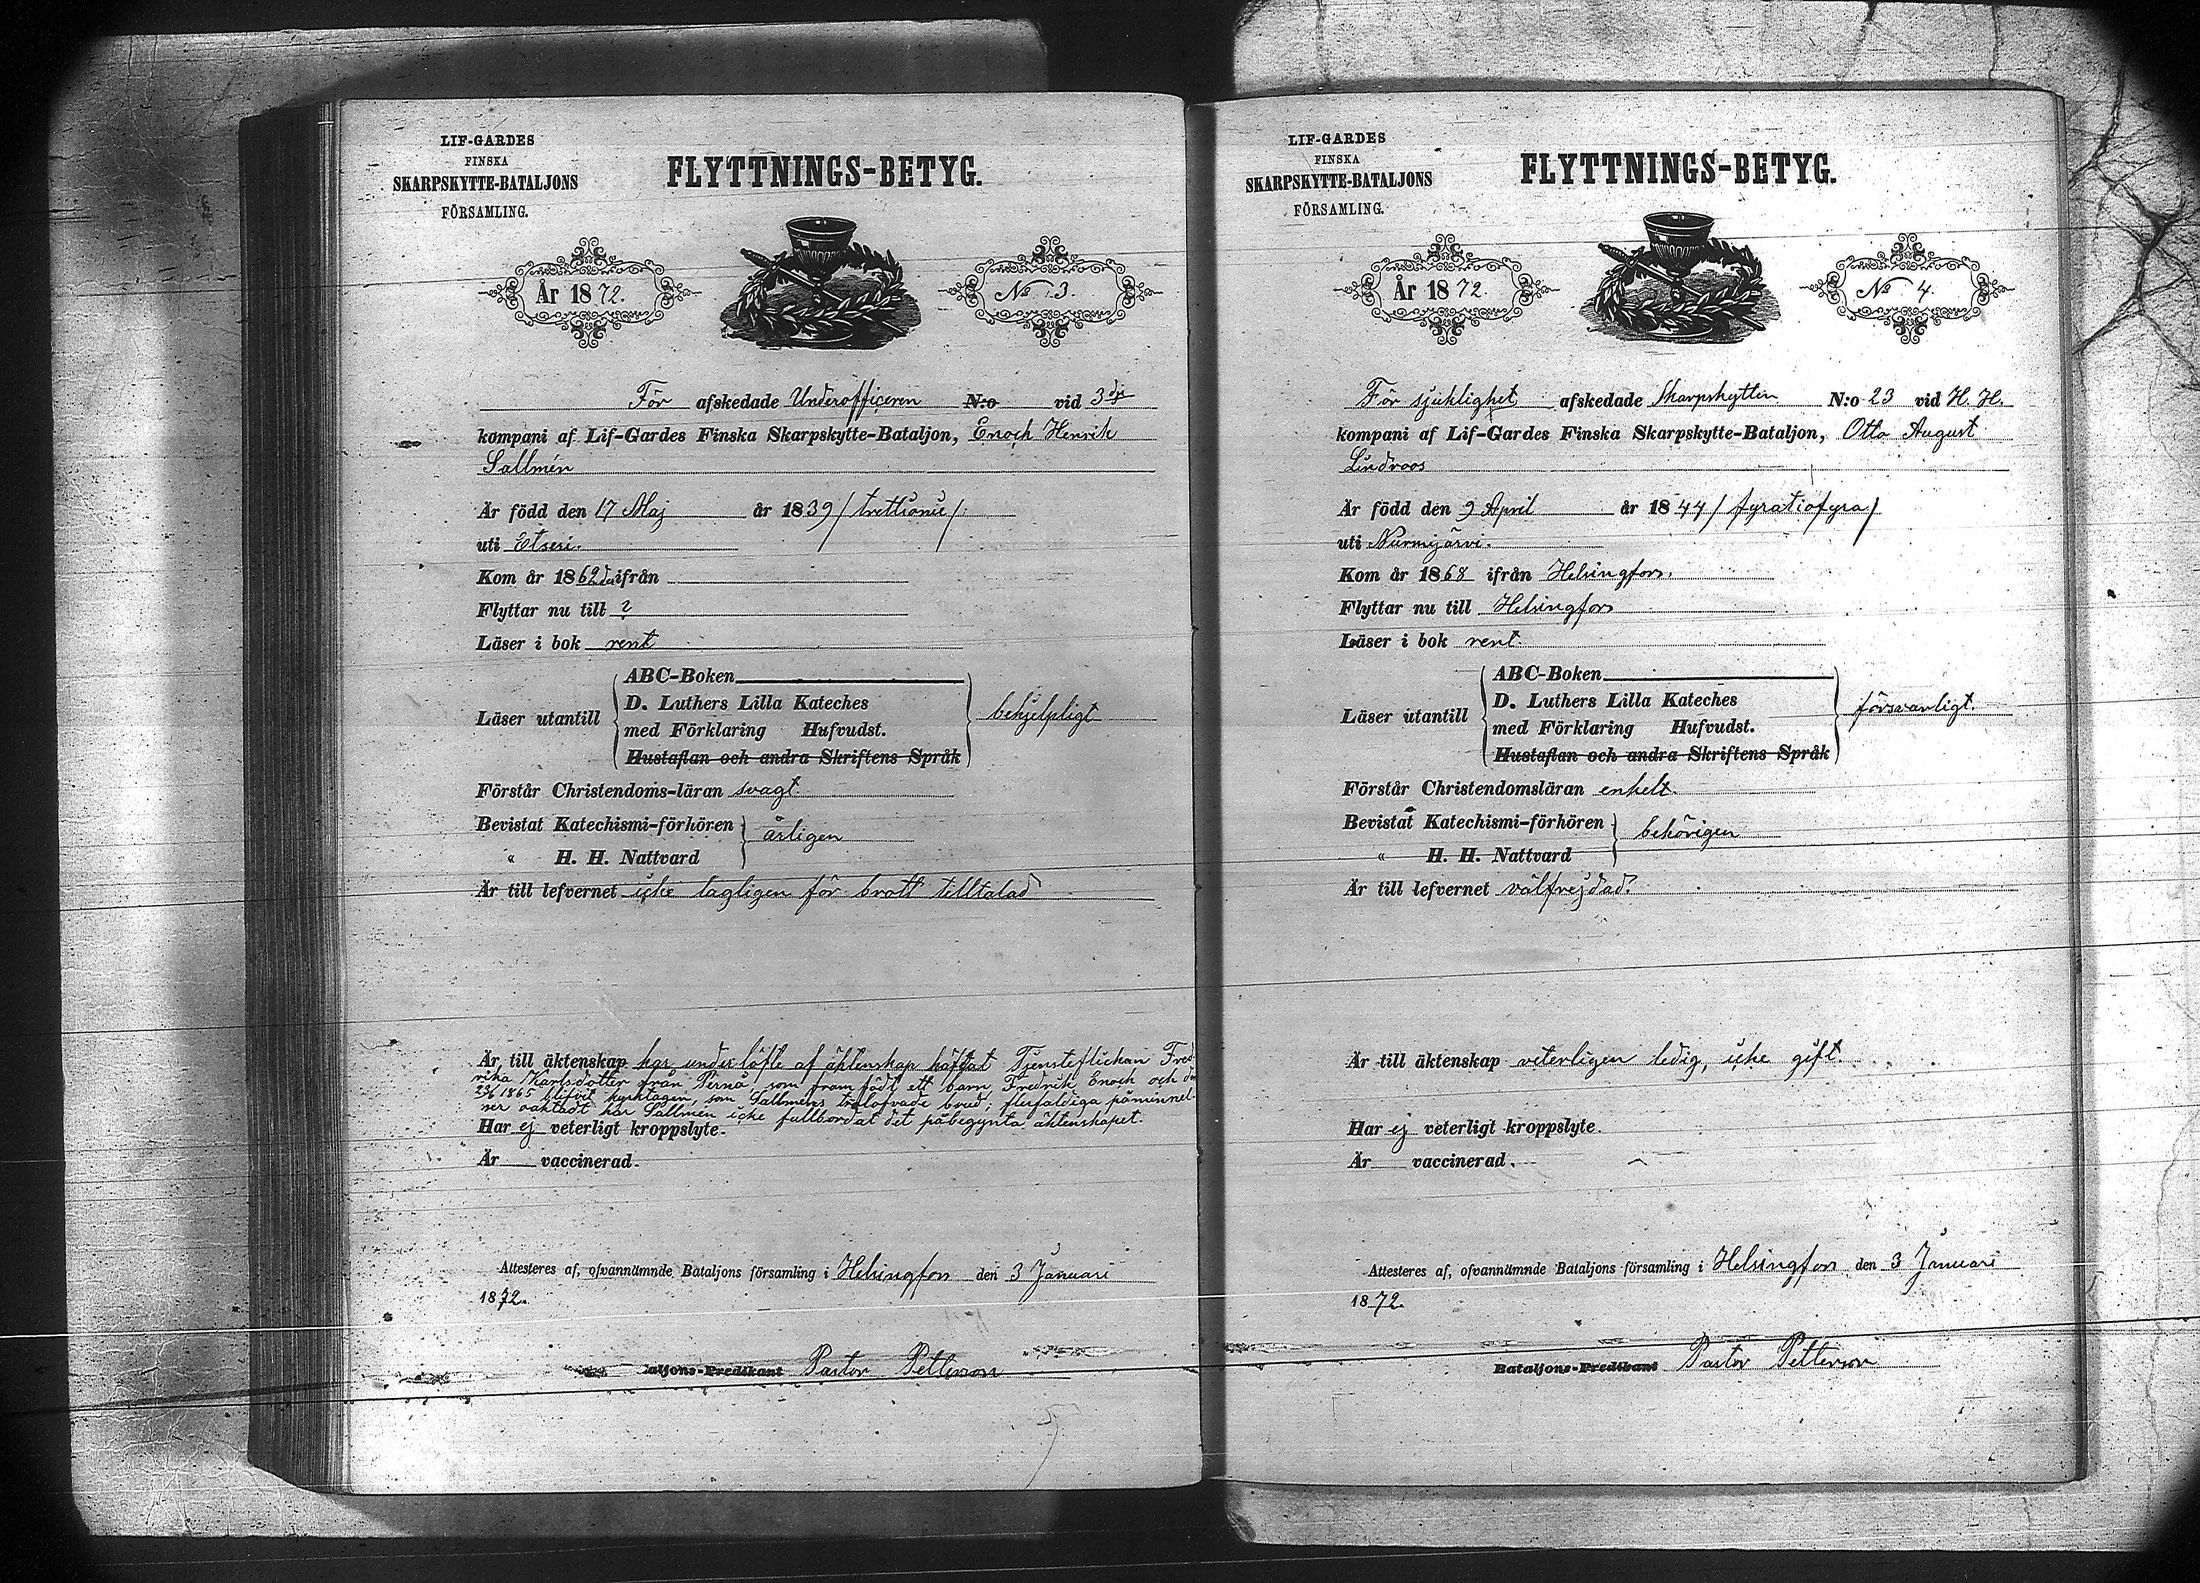 LIF-GARDES
FINSKA
SKARPSKYTTE-BATALJONS
FÖRSAMLING.
FLYTTNINGS-BETYG.
År 1872.
No 3.
För afskedade Underofficeren N:o vid 3dje
kompani af Lif-Gardes Finska Skarpskytte-Bataljon, Enoch Henrik
Sallmén
Är född den 17 Maj år 1839 / trettionie /
uti Etseri.
Kom år 1862 ifrån
Flyttar nu till ?
Läser i bok rent
ABC-Boken
D. Luthers Lilla Kateches
Läser utantill behjelpligt
med Förklaring Hufvudst.
Hustaflan och andra Skriftens Språk
Förstår Christendoms-läran svagt.
Bevistat Katechismi-förhören årligen
" H. H. Nattvard
Är till lefvernet icke lagligen för brott tilltalad
Är till äktenskap har under löfte af äktenskap häfdat Tjensteflickan Fred-
rika Karlsdotter från Pernå, som framfödt ett barn Fredrik Enoch och
1865 blifvit kyrktagen, som Sallmens trolofvade brud; flerfaldiga påminnel-
ser oaktadt har Sallmén icke fullbordat det påbegynta äktenskapet.
Har ej veterligt kroppslyte.
Är vaccinerad.
Attesteres af, ofvannämnde Bataljons församling i Helsingfors den 3 Januari
1872.
aljons-Predikant Pastor Petterson
LIF-GARDES
FINSKA
SKARPSKYTTE-BATALJONS
FÖRSAMLING.
FLYTTNINGS-BETYG.
År 1872.
No 4.
För sjuklighet afskedade Skarpskytten N:o 23 vid H. H.
kompani af Lif-Gardes Finska Skarpskytte-Bataljon, Otto August
Lindroos
Är född den 9 April år 1844 / fyratiofyra /
uti Nurmijärvi.
Kom år 1868 ifrån Helsingfors.
Flyttar nu till Helsingfors
Läser i bok rent.
ABC-Boken
D. Luthers Lilla Kateches
Läser utantill försvarligt.
med Förklaring Hufvudst.
Hustaflan och andra Skriftens Språk
Förstår Christendomsläran enkelt.
Bevistat Katechismi-förhören behörigen
" H. H. Nattvard
Är till lefvernet välfrejdad.
Är till äktenskap veterligen ledig, icke gift.
Har ej veterligt kroppslyte.
Är vaccinerad.
Attesteres af, ofvannämnde Bataljons församling i Helsingfors den 3 Januari
1872.
Bataljons-Predikant Pastor Petterson